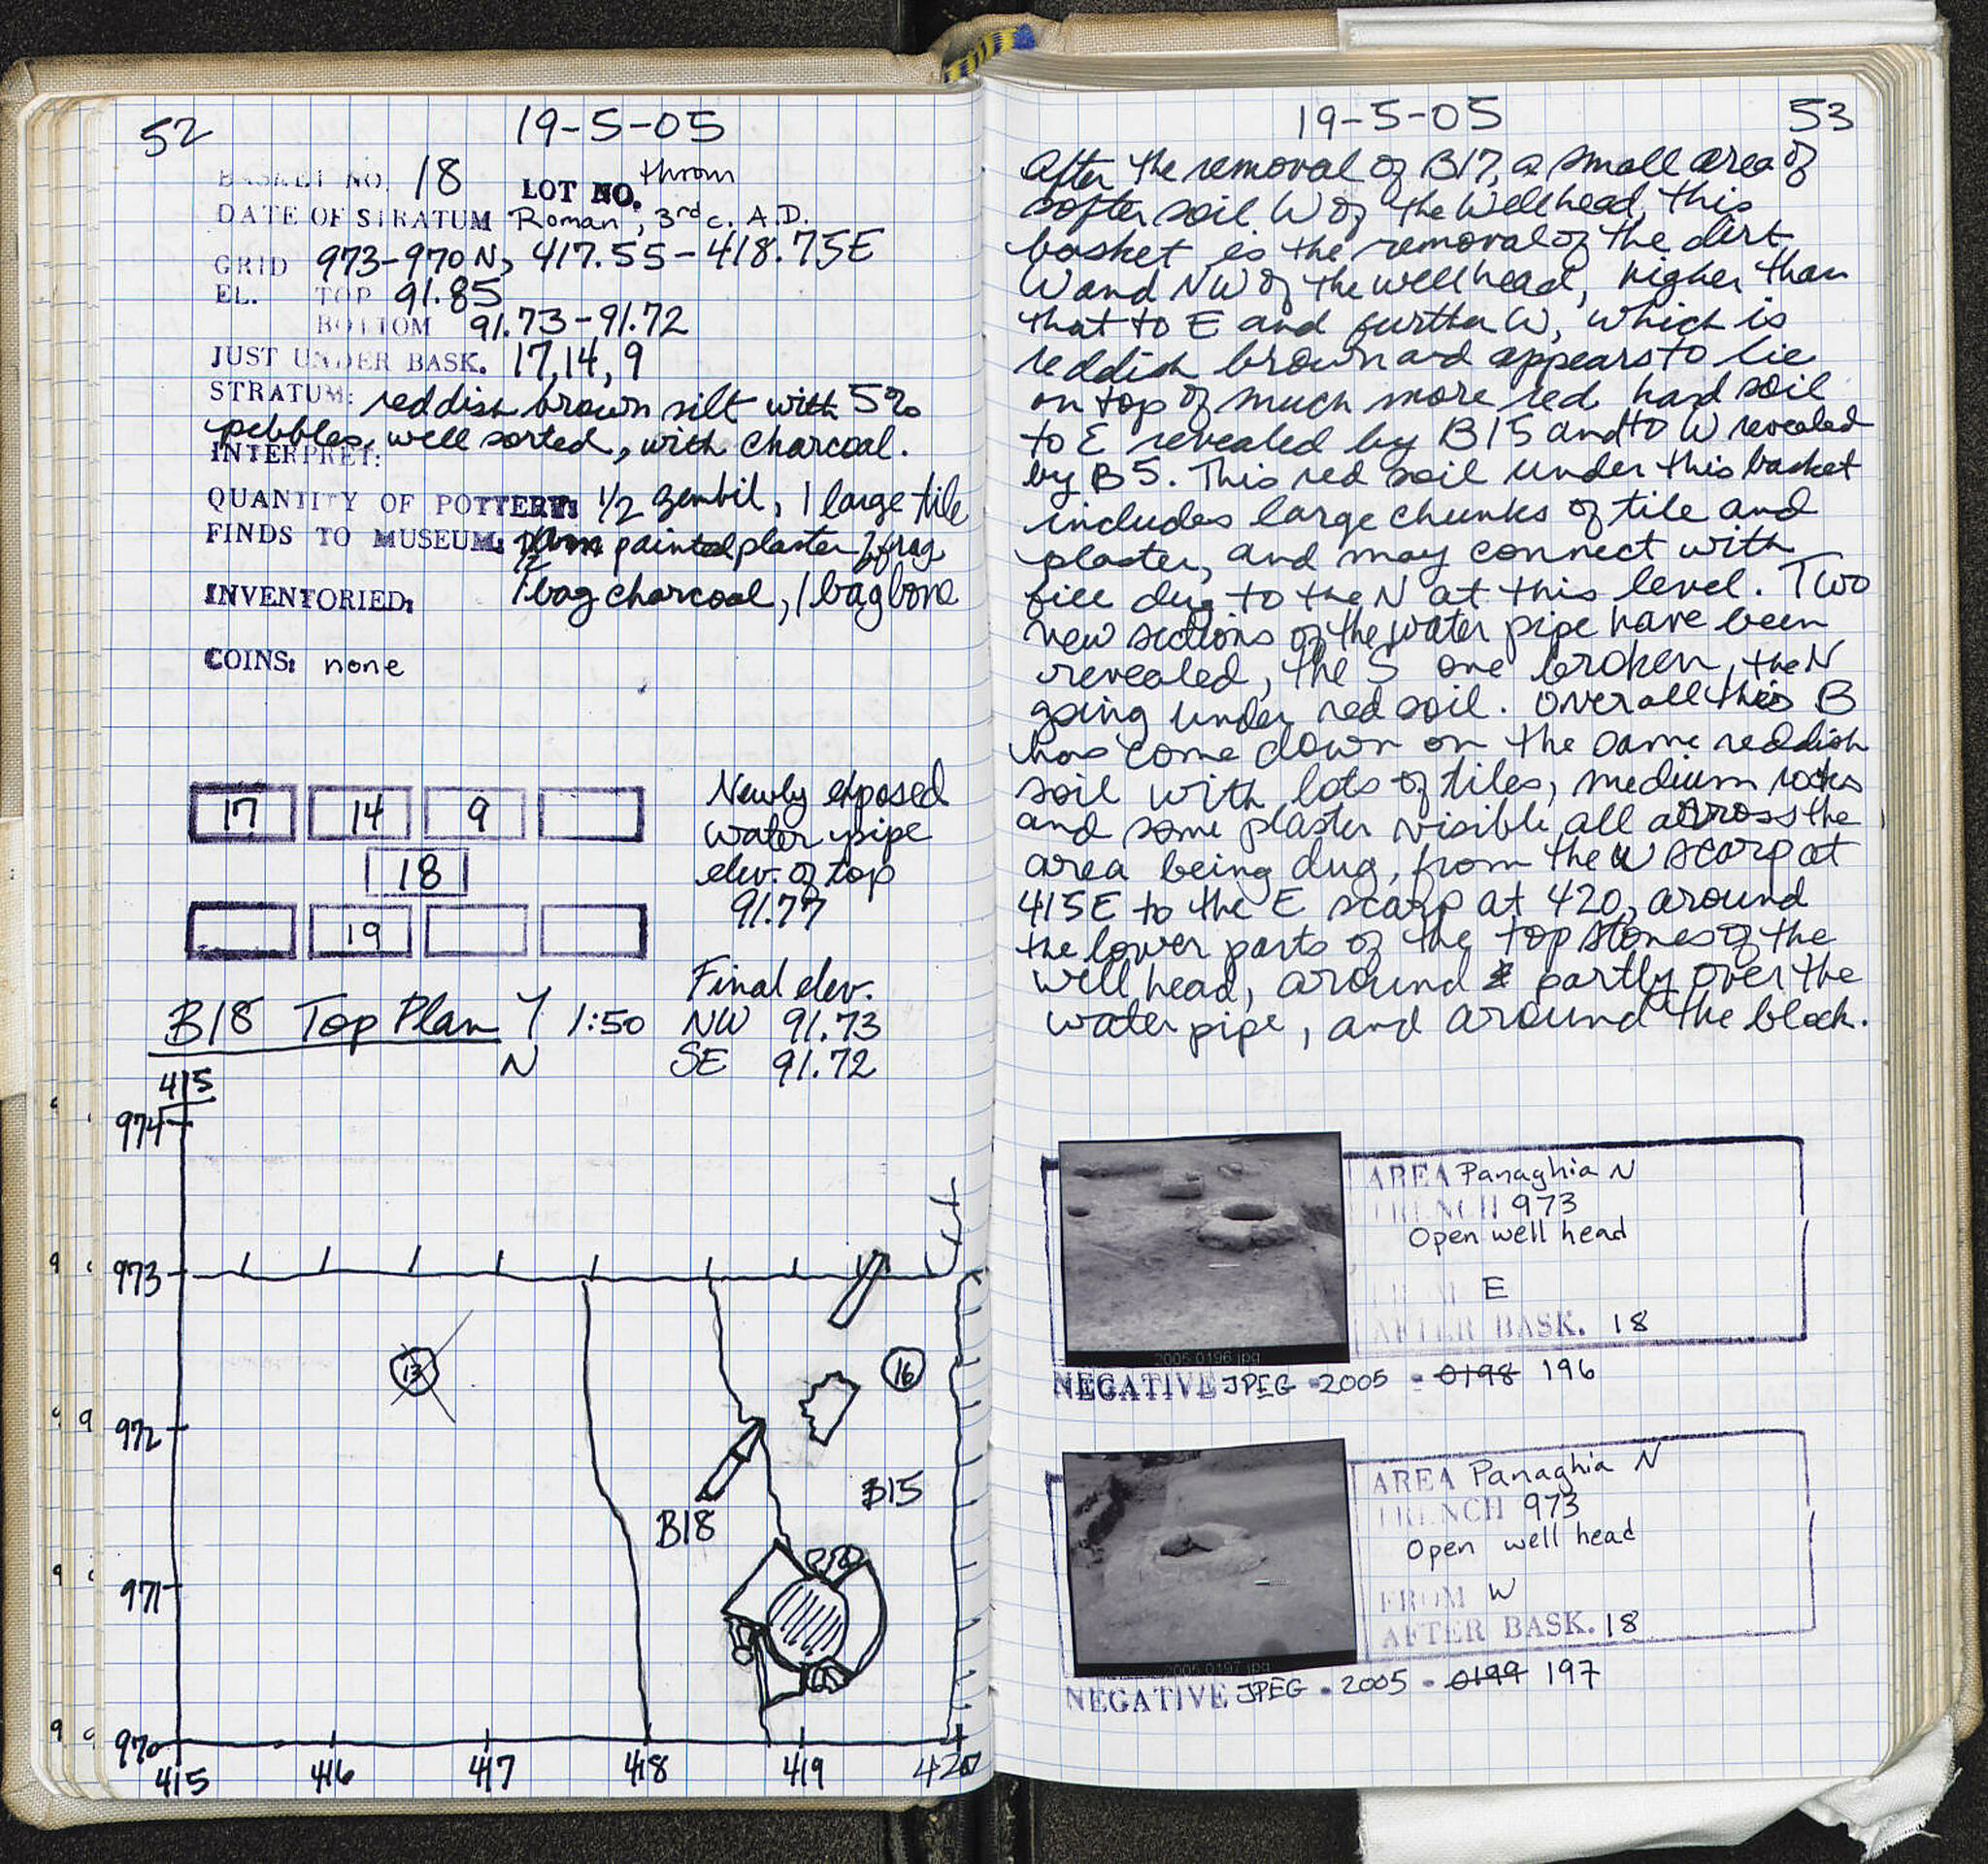 52
19-5-05
BASKET NO. 18 LOT NO. thrown
DATE OF STRATUM Roman, 3rd c. A.D.
GRID 973-970 N, 417.55-418.75E
EL. TOP 91.85
BOTTOM 91.73-91.72
JUST UNDER BASK. 17, 14, 9
STRATUM: reddish brown silt with 5%
pebbles, well sorted, with charcoal.
INTERPRET:
QUANTITY OF POTTERY: 1/2 zembil, 1 large tile
FINDS TO MUSEUM: painted plaster frag
INVENTORIED: 1 bag charcoal, 1 bag bone
COINS: none
17 14 9
18
19
Newly exposed
water pipe
elev. of top
91.77
Final elev.
NW 91.73
SE 91.72
B18 Top Plan 1:50
N
415
974
973
972
971
970
13
16
B15
B18
415 416 417 418 419 420
19-5-05
53
After the removal of B17, a small area of
softer soil W of the wellhead, this
basket is the removal of the dirt
W and NW of the wellhead, higher than
that to E and further W, which is
reddish brown and appears to lie
on top of much more red hard soil
to E revealed by B15 and to W revealed
by B5. This red soil under this basket
includes large chunks of tile and
plaster, and may connect with
fill dug to the N at this level. Two
new sections of the water pipe have been
revealed, the S one broken, the N
going under red soil. Overall this B
has come down on the same reddish
soil with lots of tiles, medium rocks
and some plaster visible all across the
area being dug, from the W scarp at
415E to the E scarp at 420, around
the lower parts of the top stones of the
well head, around & partly over the
water pipe, and around the block.
AREA Panaghia N
TRENCH 973
Open well head
FROM E
AFTER BASK. 18
2005-0196.jpg
NEGATIVE JPEG - 2005 - 0198 196
AREA Panaghia N
TRENCH 973
Open well head
FROM W
AFTER BASK. 18
2005-0197.jpg
NEGATIVE JPEG - 2005 - 0199 197